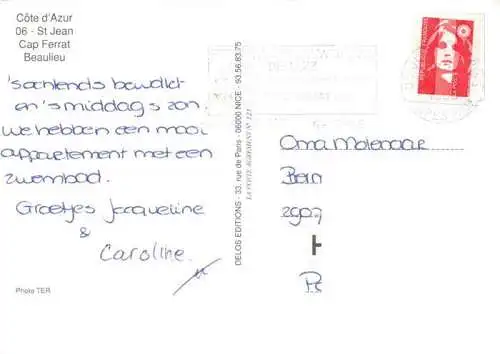 Côte d'Azur
06 - St Jean
Cap Ferrat
Beaulieu
's ochtends bewolkt
en 's middags zon.
We hebben een mooi
appartement met een
zwembad.
Groetjes Jacqueline
&
Caroline.
Photo TER
DELOS EDITIONS - 33, rue de Paris - 06000 NICE 93.56.83.75
LA POSTE AGREMENT N° 127
REPUBLIQUE FRANÇAISE
LA POSTE
Oma Molenaar